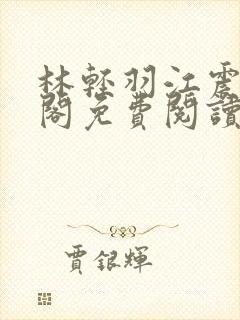 林輕羽江震
閣免費閱讀
賈銀輝